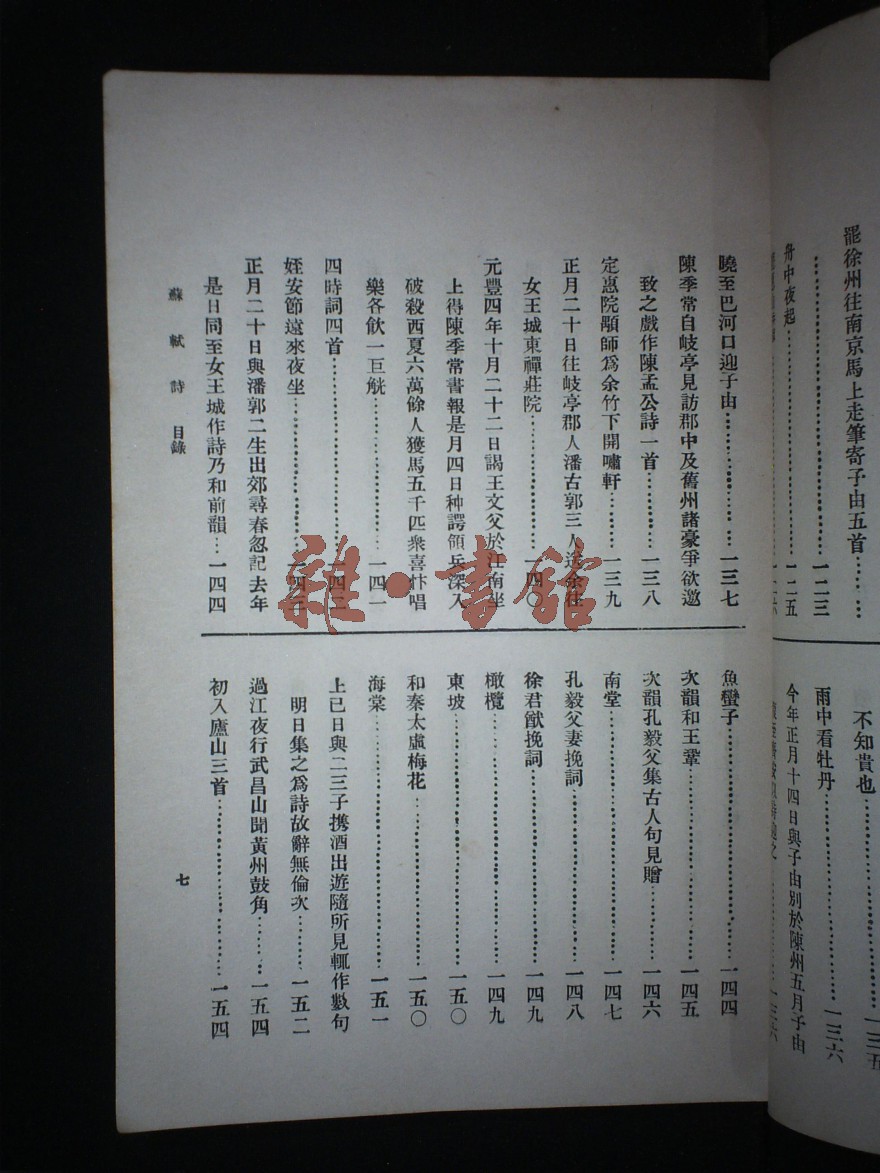 罷徐州往南京馬上走筆寄子由五首……
………………一二三
舟中夜起………………一二五
不知貴也………………一三五
雨中看牡丹………………一三六
今年正月十四日與子由別於陳州五月子由
曉至巴河口迎子由………………一三七
陳季常自岐亭見訪郡中及舊州諸豪爭欲邀
致之戲作陳孟公詩一首………一三八
定惠院顒師爲余竹下開嘯軒………一三九
正月二十日往岐亭郡人潘古郭三人送余往
女王城東禪莊院………………一四〇
元豐四年十月二十二日謁王文父於江南坐
上得陳季常書報是月四日种諤領兵深入
破殺西夏六萬餘人獲馬五千匹衆喜忭唱
樂各飲一巨觥………………一四一
四時詞四首………………一四二
姪安節遠來夜坐………………一四三
正月二十日與潘郭二生出郊尋春忽記去年
是日同至女王城作詩乃和前韻…一四四
魚蠻子………………一四四
次韻和王鞏………………一四五
次韻孔毅父集古人句見贈…………一四六
南堂………………一四七
孔毅父妻挽詞………………一四八
徐君猷挽詞………………一四九
橄欖………………一四九
東坡………………一五〇
和秦太虛梅花………………一五〇
海棠………………一五一
上巳日與二三子携酒出遊隨所見輒作數句
明日集之爲詩故辭無倫次………一五二
過江夜行武昌山聞黃州鼓角………一五四
初入廬山三首………………一五四
蘇軾詩 目錄
七
雜·書館